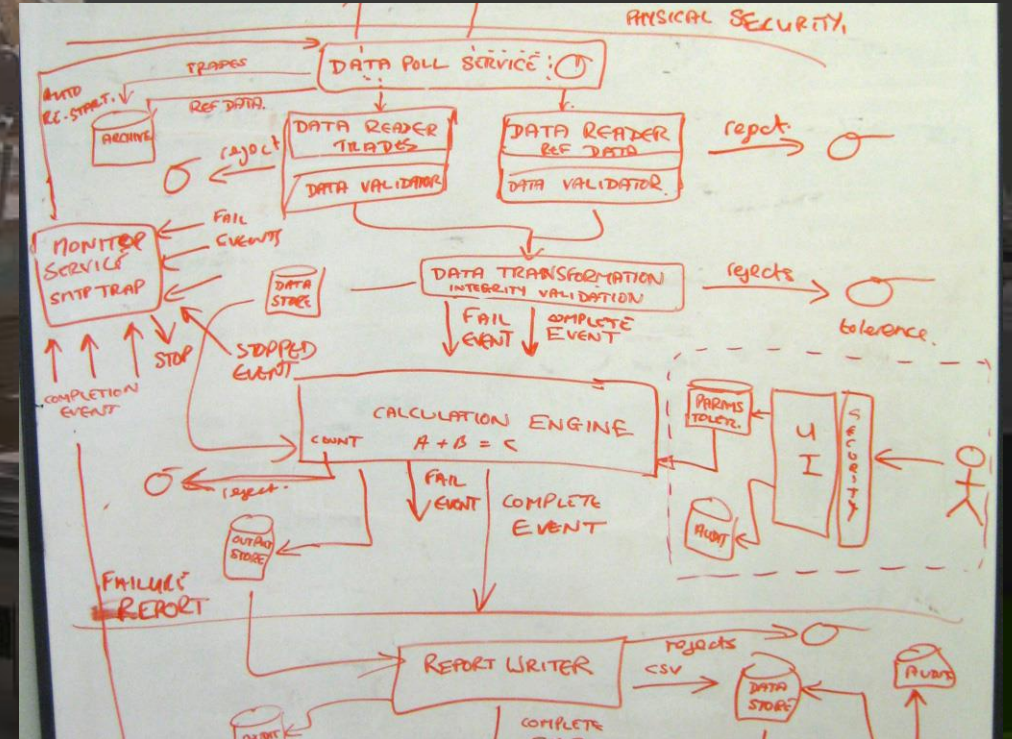 PHYSICAL SECURITY.
DATA POLL SERVICE
TRADES
AUTO
RE.START.
REF DATA.
ARCHIVE
DATA READER
TRADES
DATA VALIDATOR
DATA READER
REF DATA
DATA VALIDATOR
reject
reject.
FAIL
EVENTS
MONITOR
SERVICE
SMTP TRAP
DATA
STORE
DATA TRANSFORMATION
INTEGRITY VALIDATION
rejects
tolerence.
FAIL
EVENT
COMPLETE
EVENT
STOP
STOPPED
EVENT
COMPLETION
EVENT
CALCULATION ENGINE
COUNT
A + B = C
PARAMS
TOLER.
UI
SECURITY
AUDIT
reject.
FAIL
EVENT
COMPLETE
EVENT
OUTPUT
STORE
FAILURE
REPORT
REPORT WRITER
rejects
CSV
DATA
STORE
AUDIT
AUDIT
COMPLETE